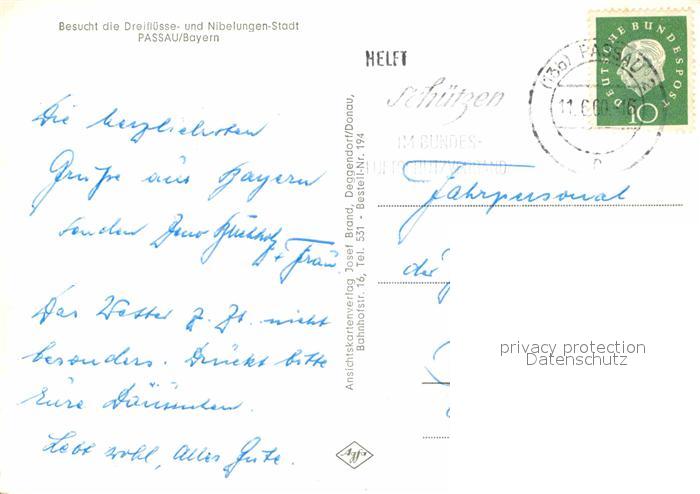 Besucht die Dreiflüsse- und Nibelungen-Stadt
PASSAU/Bayern
Die herzlichsten
Grüße aus Bayern
senden
+ Frau.
Das Wetter z. Zt. nicht
besonders. Drückt bitte
Eure Däumchen.
Lebt wohl, Alles Gute.
Ansichtskartenverlag Josef Brand, Deggendorf/Donau,
Bahnhofstr. 16, Tel. 531 - Bestell-Nr. 194
Agfa
HELFT
schützen
IM BUNDES-
LUFTSCHUTZVERBAND
(13b) PASSAU 2
11.6.60.-16
DEUTSCHE BUNDESPOST
10
Fahrpersonal
der
privacy protection
Datenschutz